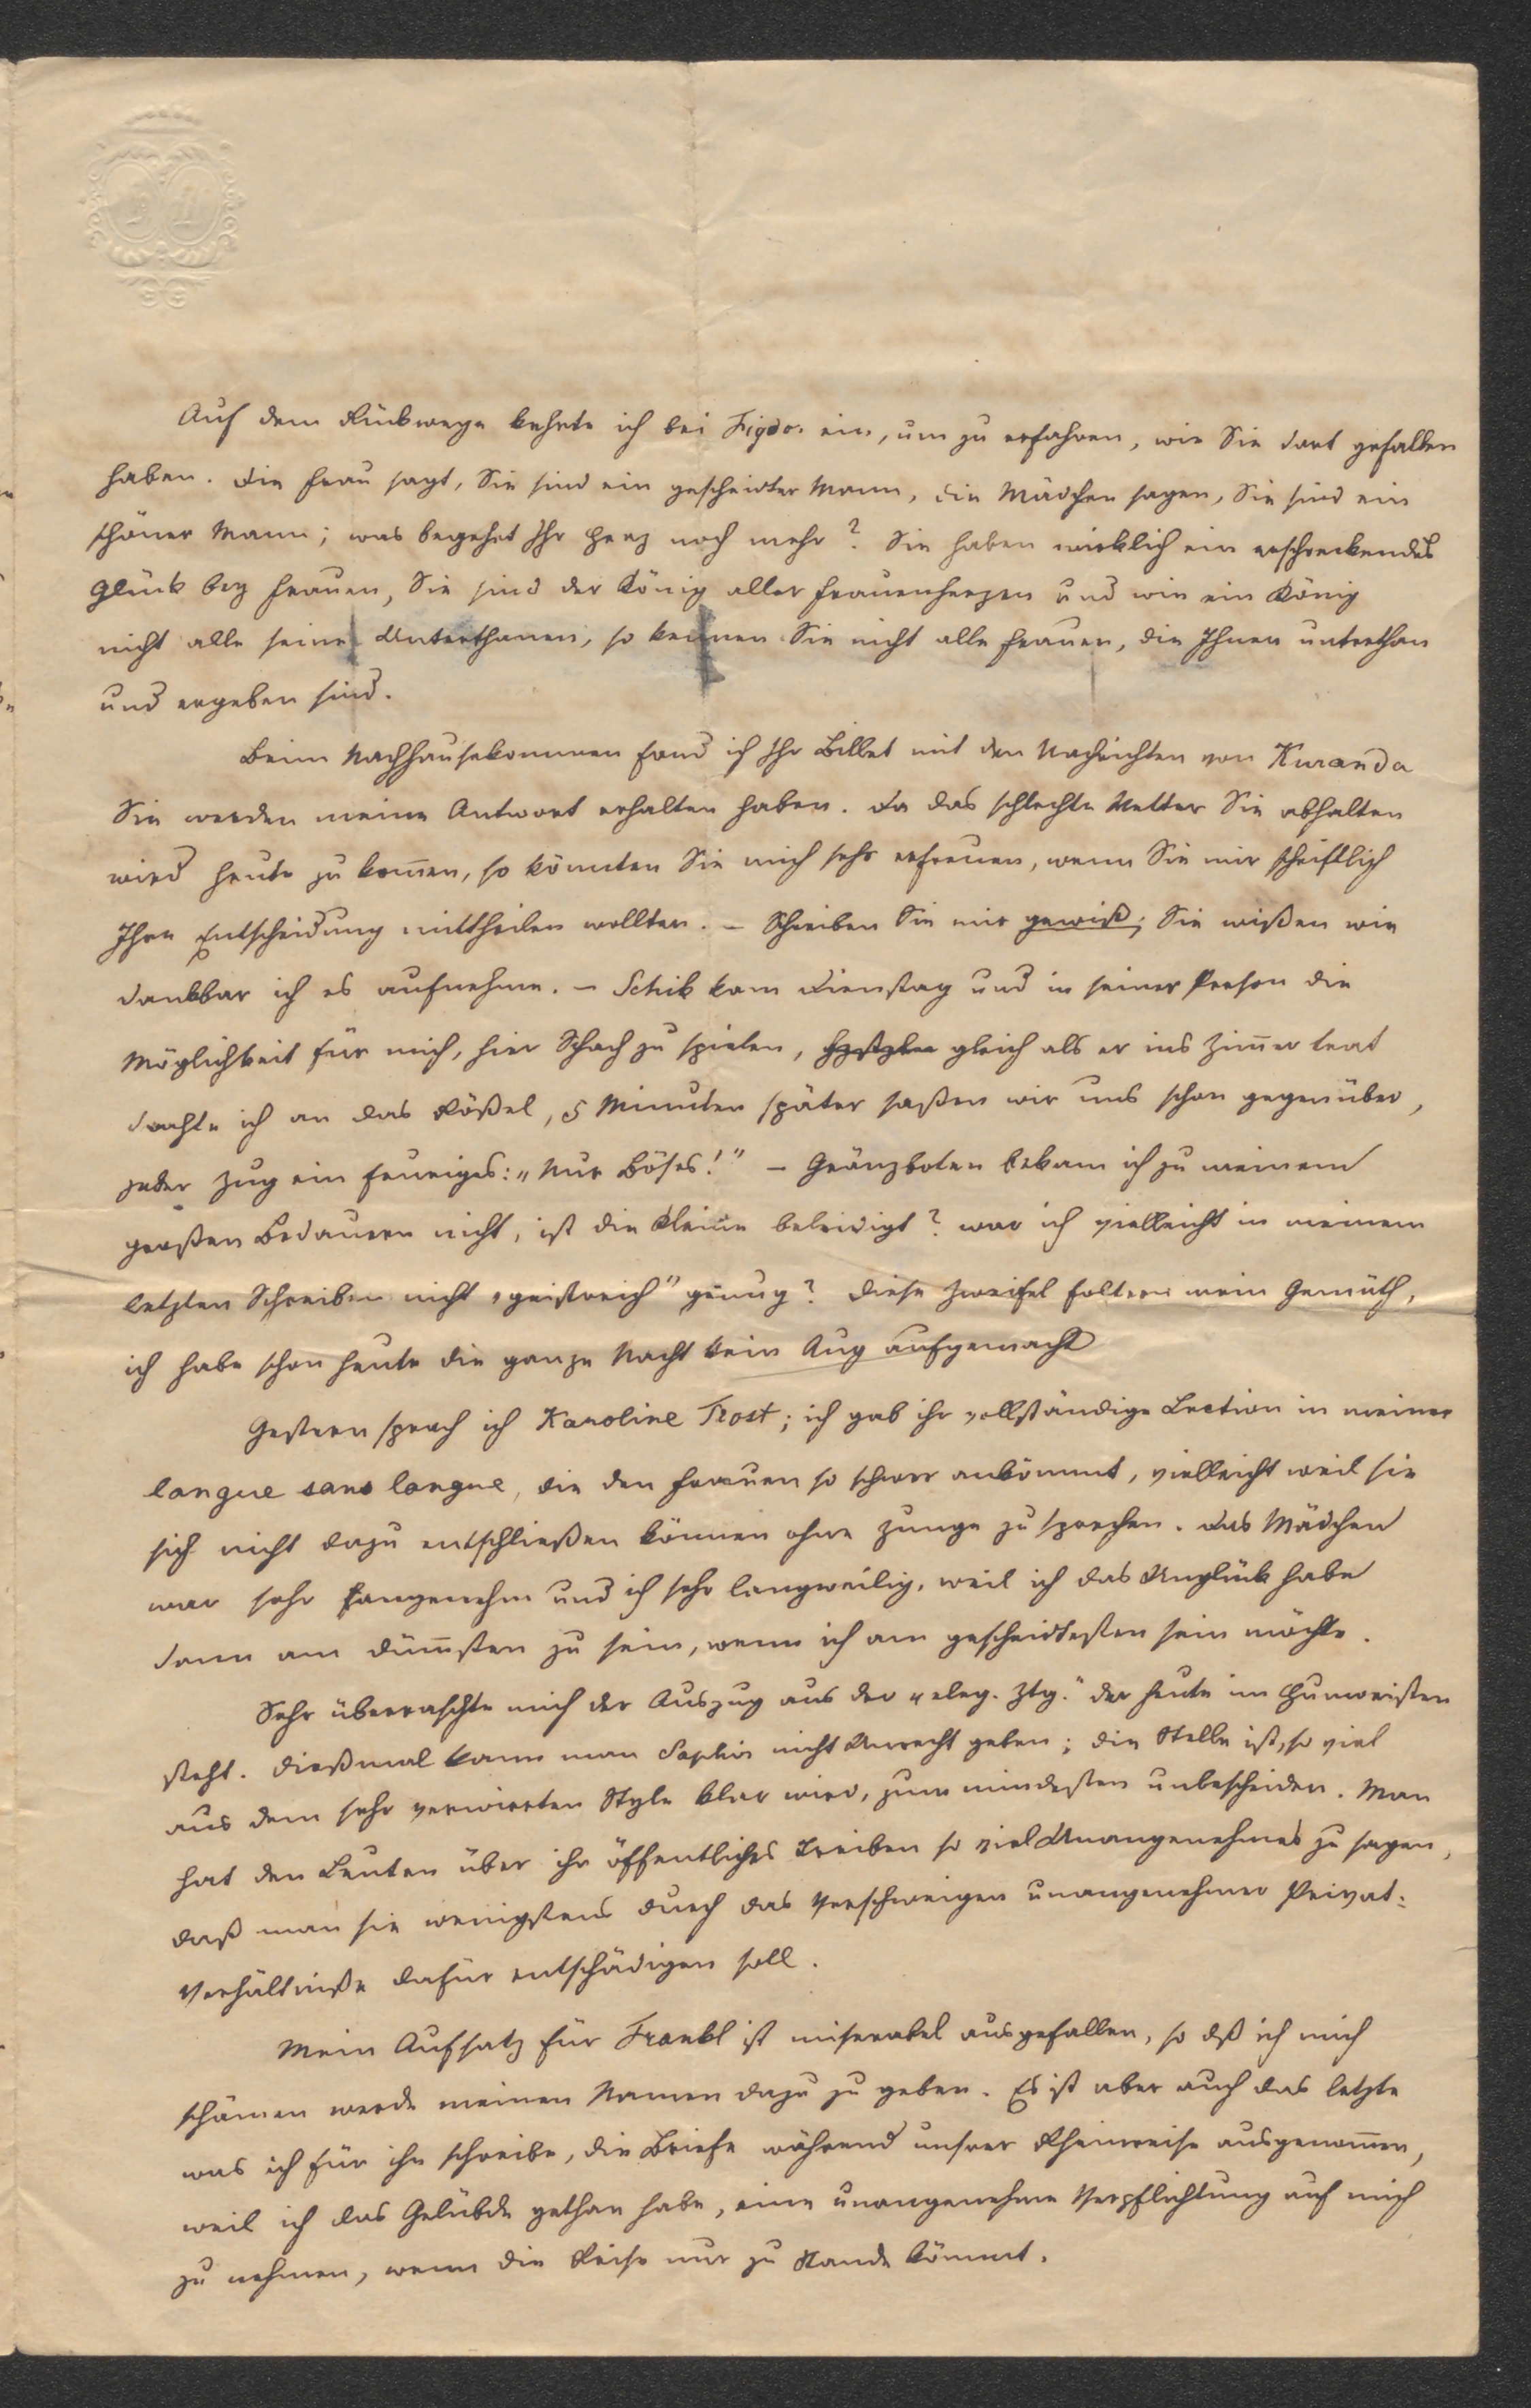 Auf dem Rückwege kehrte ich bei Figdor ein, um zu erfahren, wie Sie dort gefallen
haben. Die Frau sagt, Sie sind ein gescheidter Mann, die Mädchen sagen, Sie sind ein
schöner Mann; was begehrt Ihr Herz noch mehr? Sie haben wirklich ein erschreckendes
Glück bey Frauen, Sie sind der König aller Frauenherzen und wie ein König
nicht alle seine Unterthanen, so kennen Sie nicht alle Frauen, die Ihnen unterthan
und ergeben sind.
Beim Nachhausekommen fand ich Ihr Billet mit den Nachrichten von Kuranda
Sie werden meine Antwort erhalten haben. Da das schlechte Wetter Sie abhalten
wird heute zu kom̄en, so könnten Sie mich sehr erfreuen, wenn Sie mir schriftlich
Ihre Entscheidung mittheilen wollten. – Schreiben Sie mir gewiß; Sie wißen wie
dankbar ich es aufnehme. – Schik kam Dienstag und in seiner Person die
Möglichkeit für mich, hier Schach zu spielen, gleich als er ins Zim̄er trat
dachte ich an das Rößel, 5 Minuten später saßen wir uns schon gegenüber,
jeder Zug ein feuriges: „Nur Böses!" – Gränzboten bekam ich zu meinem
großen Bedauern nicht, ist die Kleine beleidigt? war ich vielleicht in meinem
letzten Schreiben nicht „geistreich" genug? Diese Zweifel foltern mein Gemüth,
ich habe schon heute die ganze Nacht kein Aug aufgemacht
Gestern sprach ich Karoline Trost; ich gab ihr vollständige Lection in meiner
langue sans langue, die den Frauen so schwer ankömmt, vielleicht weil sie
sich nicht dazu entschließen können ohne Zunge zu sprechen. Das Mädchen
war sehr angenehm und ich sehr langweilig, weil ich das Unglück habe
dann am düm̄sten zu sein, wenn ich am gescheidtesten sein möchte.
Sehr überraschte mich der Auszug aus der „eleg. Ztg." der heute im Humoristen
steht. Dießmal kann man Saphir nicht Unrecht geben; die Stelle ist, so viel
aus dem sehr verwirrten Style klar wird, zum mindesten unbescheiden. Man
hat den Leuten über ihr öffentliches Treiben so viel Unangenehmes zu sagen,
daß man sie wenigstens durch das Verschweigen unangenehmer Privat-
Verhältniße dafür entschädigen soll.
Mein Aufsatz für Frankl ist miserabel ausgefallen, so dß ich mich
schämen werde meinen Namen dazu zu geben. Es ist aber auch das letzte
was ich für ihn schreibe, die Briefe während unsrer Rheinreise ausgenom̄en,
weil ich das Gelübde gethan habe, eine unangenehme Verpflichtung auf mich
zu nehmen, wenn die Reise nur zu Stande kömmt.